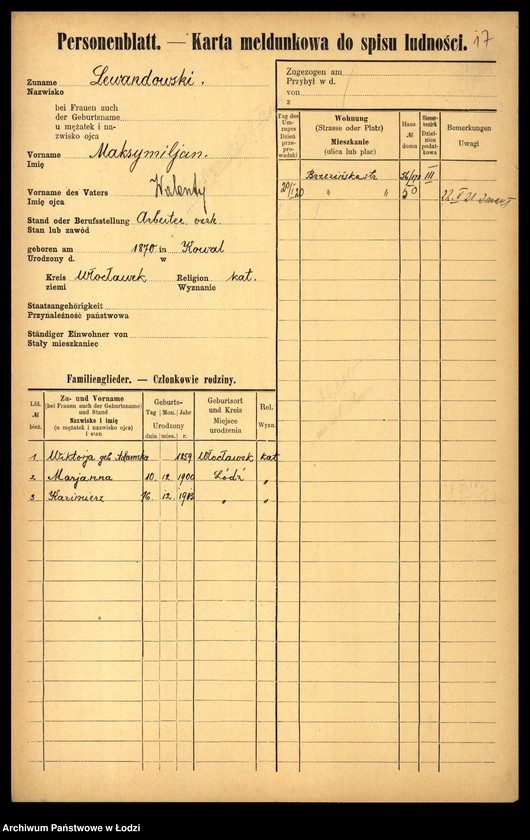 Personenblatt. — Karta meldunkowa do spisu ludności. 17
Zuname Lewandowski.
Nazwisko
bei Frauen auch
der Geburtsname
u mężatek i na-
zwisko ojca
Vorname Maksymiljan.
Imię
Vorname des Vaters Walenty
Imię ojca
Stand oder Berufsstellung Arbeiter verh.
Stan lub zawód
geboren am 1870 in Kowal
Urodzony d. w
Kreis Włocławek Religion kat.
ziemi Wyznanie
Staatsangehörigkeit
Przynależność państwowa
Ständiger Einwohner von
Stały mieszkaniec
Zugezogen am
Przybył w d.
von
z
Tag des Um-zuges Dzień prze-prowadzki
Wohnung
(Strasse oder Platz)
Mieszkanie
(ulica lub plac)
Haus
№
domu
Steuer-bezirk Dziel-nica podat-kowa
Bemerkungen
Uwagi
Brzezińska str III
20/I 20 " " 50 22. V 21 zmarł
Familienglieder. — Członkowie rodziny.
Lfd.
№
bież.
Zu- und Vorname
(bei Frauen auch der Geburtsname)
und Stand
Nazwisko i imię
(u mężatek i nazwisko ojca)
i stan
Geburts-
Tag Mon. Jahr
Urodzony
dnia mies. r.
Geburtsort
und Kreis
Miejsce
urodzenia
Rel.
Wyzn.
1. Wiktorja geb. Adamska 1859 Włocławek kat.
2 Marjanna 10. 12. 1900 Łódź "
3 Kazimierz 16. 12. " "
Archiwum Państwowe w Łodzi